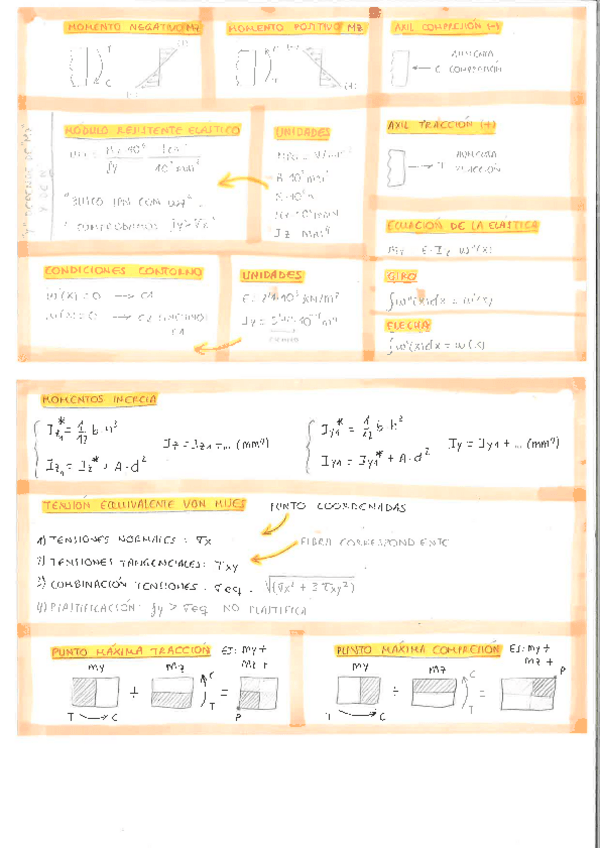 MOMENTO NEGATIVO MZ
T
C
(+)
MOMENTO POSITIVO MZ
(-)
(+)
AXIL COMPRESIÓN (-)
AUMENTA
C COMPRESIÓN
MÓDULO RESISTENTE ELÁSTICO
"BUSCO IPN CON Wz"
COMPROBAMOS fy > σx
UNIDADES
I z mm⁴
AXIL TRACCIÓN (+)
AUMENTA
TRACCIÓN
ECUACIÓN DE LA ELÁSTICA
Mz = E·Iz w''(x)
GIRO
∫w''(x)dx = w'(x)
FLECHA
∫w'(x)dx = w(x)
CONDICIONES CONTORNO
w'(x) = 0 → C1
w(x) = 0 → C2
UNIDADES
MOMENTOS INERCIA
Iz1* = 1/12 b·h³
Iz1 = Iz* + A·d²
Iz = Iz1 + ... (mm⁴)
Iy1* = 1/12 b·h³
Iy1 = Iy1* + A·d²
Iy = Iy1 + ... (mm⁴)
TENSIÓN EQUIVALENTE VON MISES
PUNTO COORDENADAS
1) TENSIONES NORMALES: σx
FIBRA CORRESPONDIENTE
2) TENSIONES TANGENCIALES: τxy
3) COMBINACIÓN TENSIONES: σeq = √(σx² + 3τxy²)
4) PLASTIFICACIÓN: fy > σeq NO PLASTIFICA
PUNTO MÁXIMA TRACCIÓN EJ: My+
Mz+
My
Mz
T → C
C
T
P
PUNTO MÁXIMA COMPRESIÓN EJ: My+
Mz+
My
Mz
T → C
C
T
P